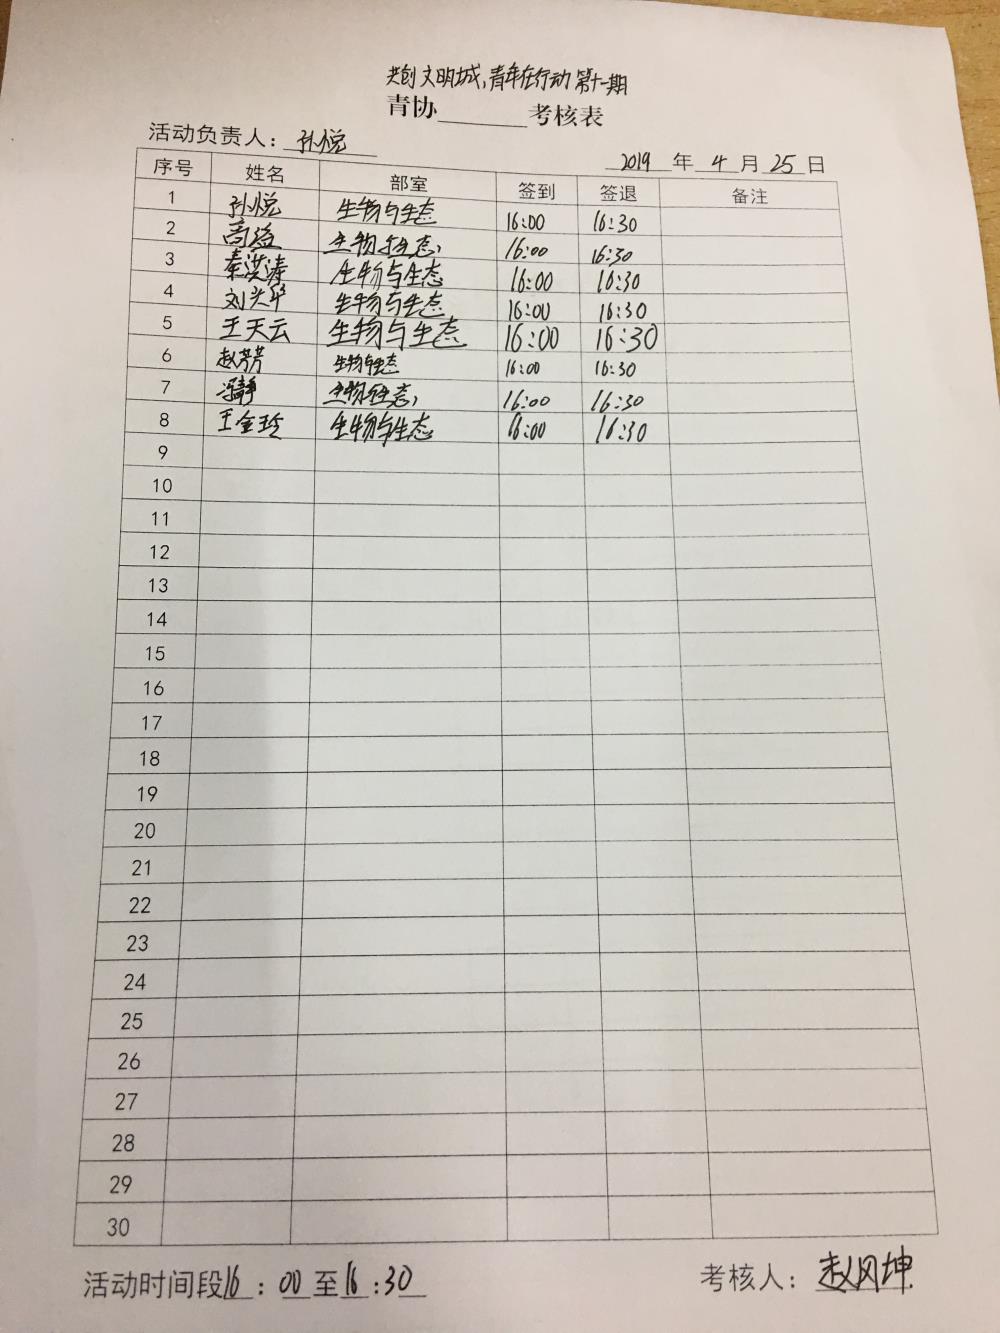 共创文明城，青年在行动 第十一期
青协______考核表
活动负责人：孙悦
2019 年 4 月 25 日
序号 姓名 部室 签到 签退 备注
1 孙悦 生物与生态 16:00 16:30
2 生物与生态 16:00 16:30
3 秦洪涛 生物与生态 16:00 16:30
4 生物与生态 16:00 16:30
5 王天云 生物与生态 16:00 16:30
6 赵芳芳 生物与生态 16:00 16:30
7 冯静 生物与生态 16:00 16:30
8 王金玲 生物与生态 16:00 16:30
9
10
11
12
13
14
15
16
17
18
19
20
21
22
23
24
25
26
27
28
29
30
活动时间段 16:00至16:30 考核人：赵风坤